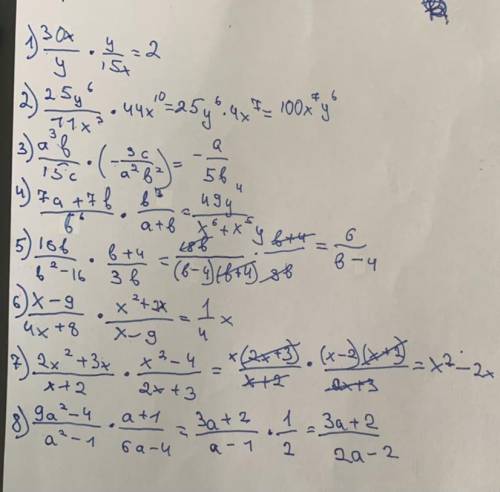 1) 30x/y · y/15x = 2
2) 25y⁶/11x³ · 44x¹⁰ = 25y⁶ · 4x⁷ = 100x⁷y⁶
3) a³b/15c · (-3c/a²b²) = -a/5b
4) 7a+7b/b⁶ · b⁷/a+b = 49y⁴/x⁶+x⁵y
5) 16b/b²-16 · b+4/3b = 18b/(b-4)(b+4) · b+4/3b = 6/b-4
6) x-9/4x+8 · x²+2x/x-9 = 1/4 x
7) 2x²+3x/x+2 · x²-4/2x+3 = x(2x+3)/x+2 · (x-2)(x+2)/2x+3 = x²-2x
8) 9a²-4/a²-1 · a+1/6a-4 = 3a+2/a-1 · 1/2 = 3a+2/2a-2